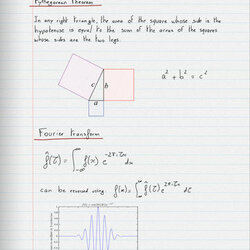 Pythagorean Theorem
In any right triangle, the area of the square whose side is the
hypotenuse is equal to the sum of the areas of the squares
whose sides are the two legs.
c b
a
a² + b² = c²
Fourier transform
f̂(ξ) = ∫_{-∞}^{∞} f(x) e^{-2πiξx} dx
can be reversed using: f(x) = ∫_{-∞}^{∞} f̂(ξ) e^{2πiξx} dξ